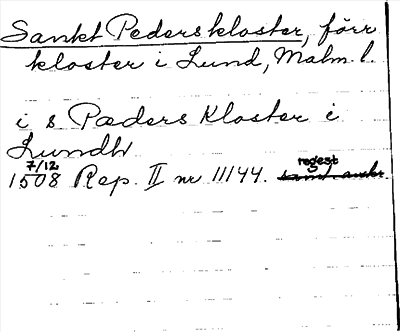 Sankt Peders kloster, förr
kloster i Lund, Malm. l.
i s Pæders Kloster i
Lundh
7/12 regest
1508 Rep. II nr 11144.